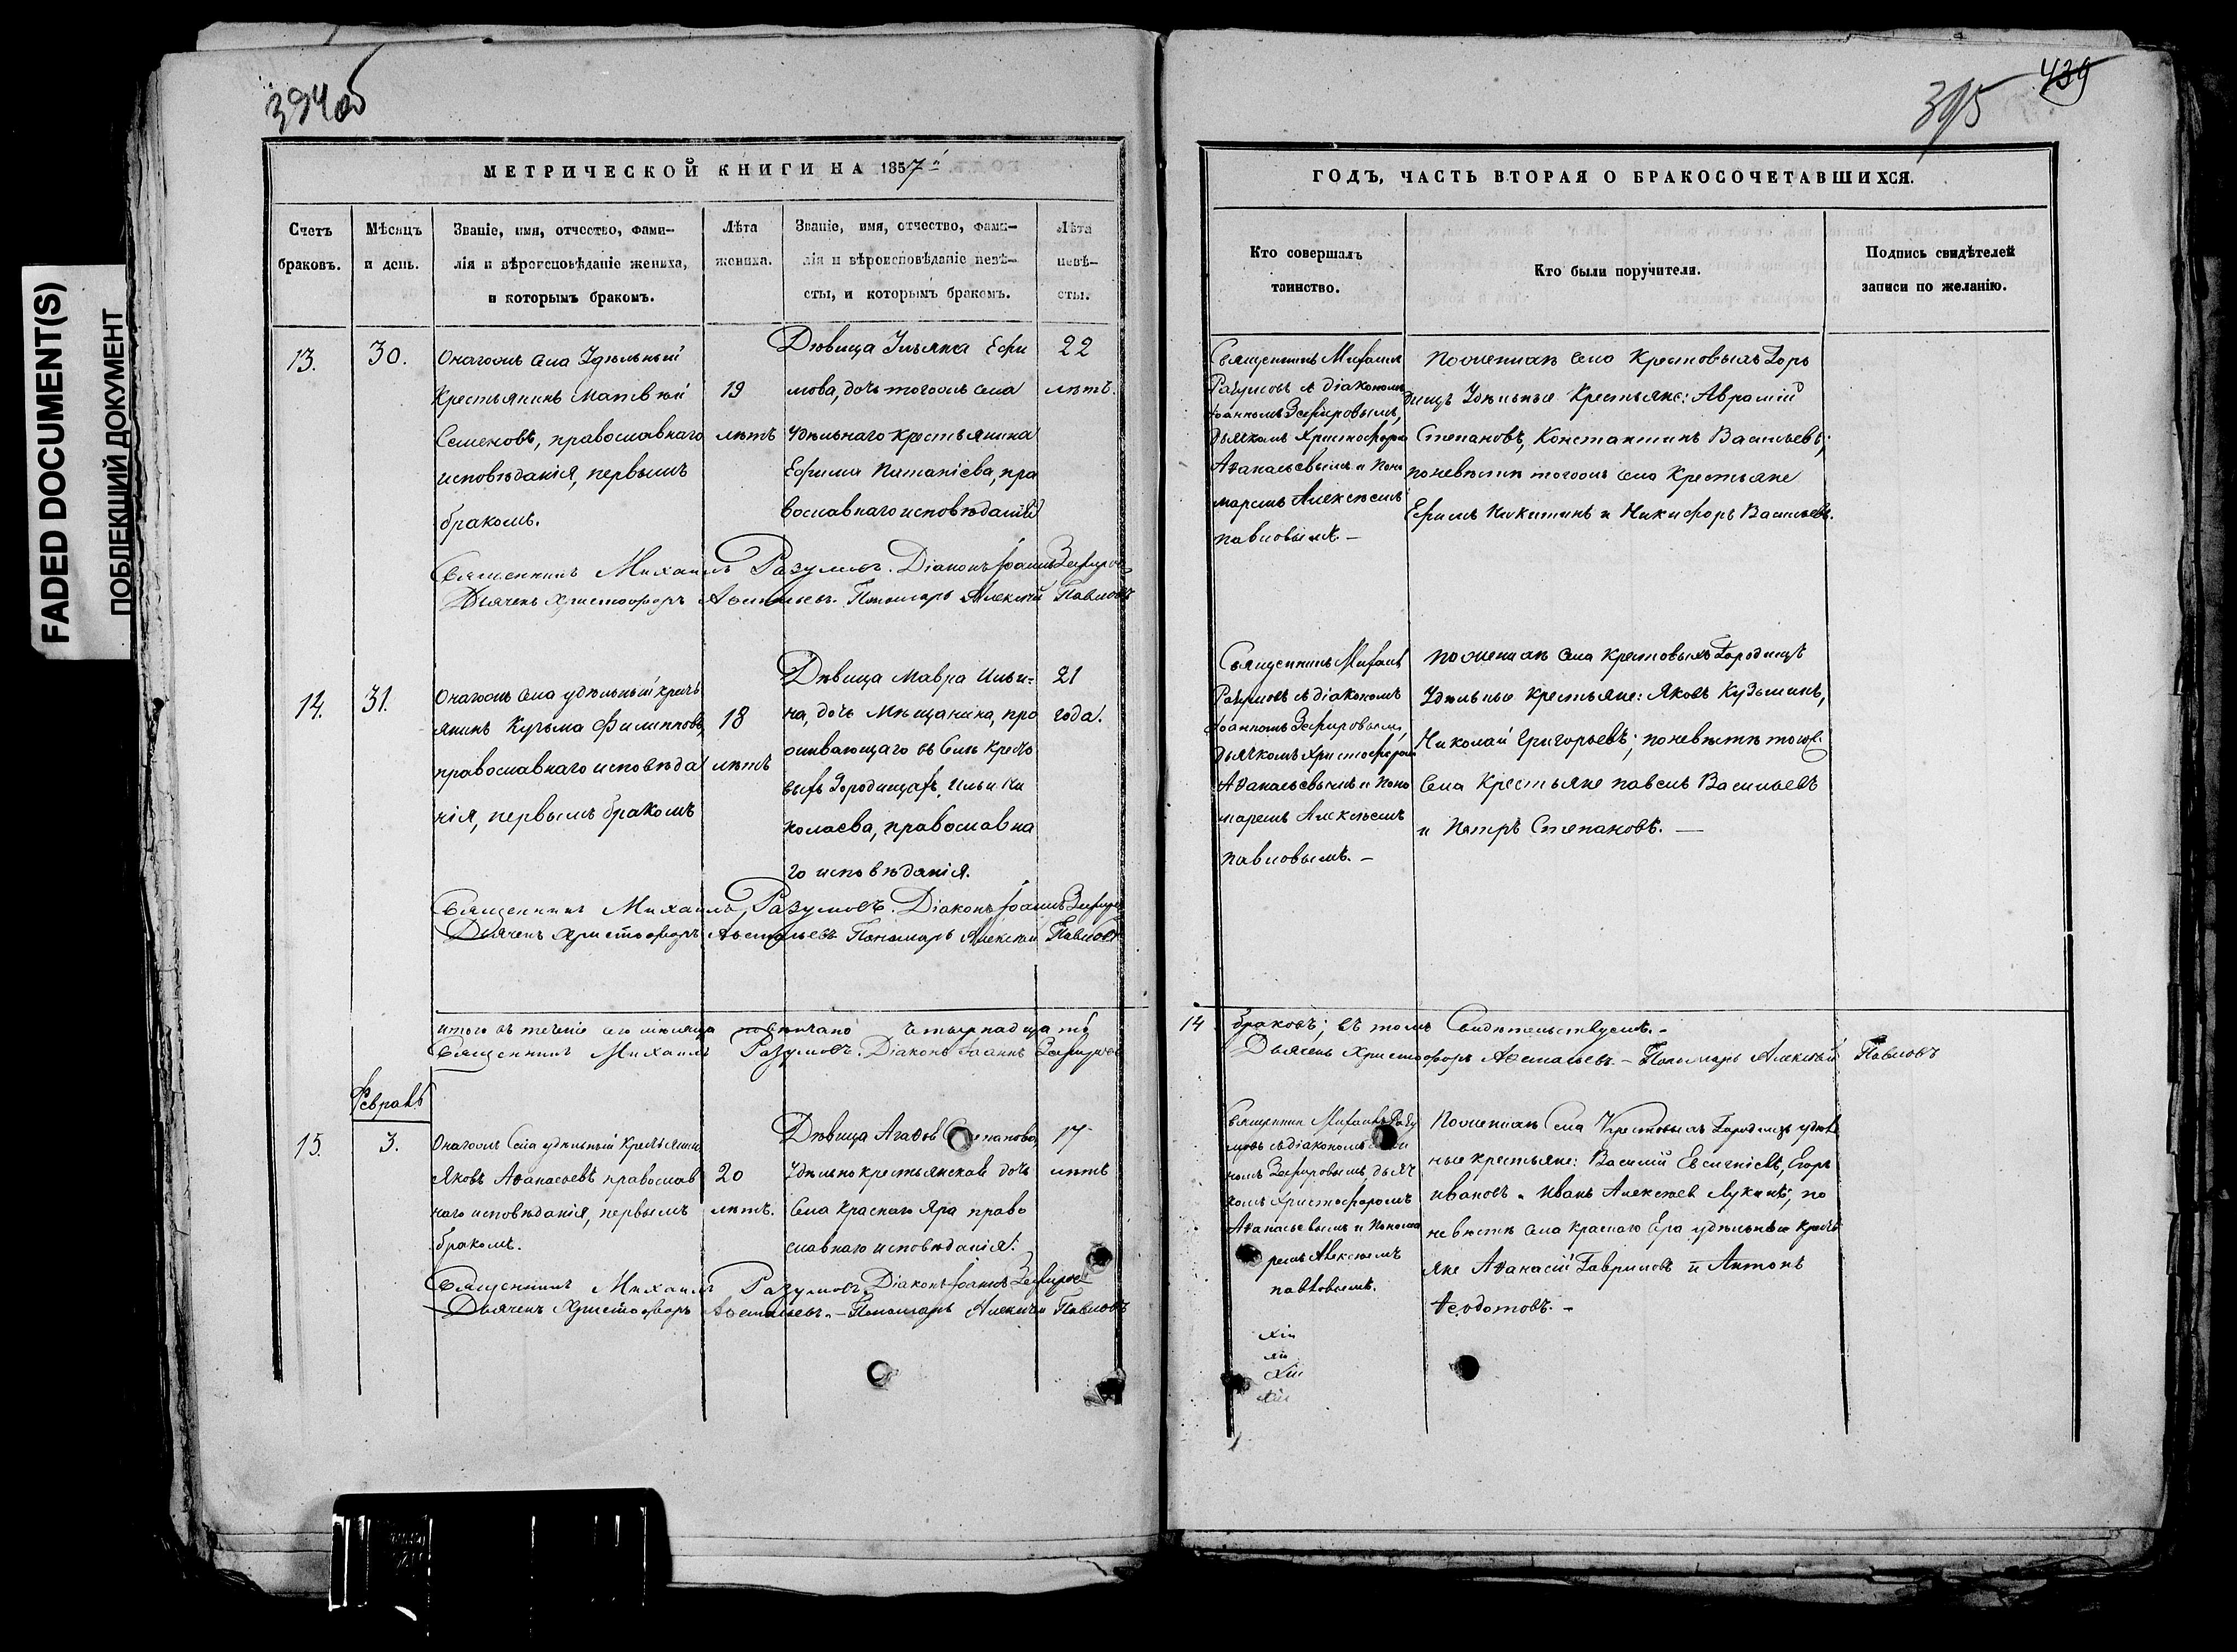 FADED DOCUMENT(S)
ПОБЛЕКШИЙ ДОКУМЕНТ
394 об
МЕТРИЧЕСКОЙ КНИГИ НА 1857
Счетъ
браковъ.
Мѣсяцъ
и день.
Званіе, имя, отчество, фами-
лія и вѣроисповѣданіе жениха,
и которымъ бракомъ.
Лѣта
жениха.
Званіе, имя, отчество, фами-
лія и вѣроисповѣданіе невѣ-
сты, и которымъ бракомъ.
Лѣта
невѣ-
сты.
13.
30.
Онагожъ Села Удѣльный
Крестьянинъ Матвѣй
Семеновъ, православнаго
исповѣданія, первымъ
бракомъ.
19
лѣтъ
Дѣвица Ульяна Ефи
мова, дочь тогожъ села
Удѣльнаго крестьянина
Ефима, пра
вославнаго исповѣданія
22
лѣтъ.
Священникъ Михаилъ Разумовъ. Діаконъ Іоаннъ Зефировъ
Дьячекъ Христофоръ Аѳанасьевъ. Пономарь Алексѣй Павловъ
14.
31.
Онагожъ Села удѣльный крест
янинъ Кузьма Филипповъ,
православнаго исповѣда
нія, первымъ бракомъ
18
лѣтъ
Дѣвица Мавра Ильи=
на, дочь Мѣщанина, про
живающаго въ Селѣ Кресто
выхъ Городищахъ, Ильи Ни
колаева, православна
го исповѣданія.
21
года.
Священникъ Михаилъ Разумовъ. Діаконъ Іоаннъ Зефировъ
Дьячекъ Христофоръ Аѳанасьевъ Пономарь Алексѣй Павловъ
Итого въ теченіе сего мѣсяца повѣнчано четырнадцать
Священникъ Михаилъ Разумовъ. Діаконъ Іоаннъ Зефировъ
Февраль
15.
3.
Онагожъ Села удѣльный Крестьянинъ
Яковъ Аѳанасьевъ православ
наго исповѣданія, первымъ
бракомъ.
20
лѣтъ.
Дѣвица Агаѳья Степанова,
Удѣльно крестьянская дочь
Села Краснаго Яра право
славнаго исповѣданія.
17
лѣтъ
Священникъ Михаилъ Разумовъ. Діаконъ Іоаннъ Зефировъ
Дьячекъ Христофоръ Аѳанасьевъ. – Пономарь Алексѣй Павловъ
395
439
ГОДЪ, ЧАСТЬ ВТОРАЯ О БРАКОСОЧЕТАВШИХСЯ.
Кто совершалъ
таинство.
Кто были поручители.
Подпись свидѣтелей
записи по желанію.
Священникъ Михаилъ
Разумовъ съ діакономъ
Іоанномъ Зефировымъ,
дьячкомъ Христофоро
Аѳанасьевымъ и поно
маремъ Алексѣемъ
павловымъ. –
По женихѣ села Крестовыхъ Горо
дищъ Удѣльные Крестьяне: Аврамій
Степановъ, Константинъ Васильевъ;
по невѣстѣ тогожъ села Крестьяне
Ефимъ Никитинъ и Никифоръ Васильевъ.
Священникъ Михаилъ
Разумовъ съ діакономъ
Іоанномъ Зефировымъ,
дьячкомъ Христофоромъ
Аѳанасьевымъ и поно
маремъ Алексѣемъ
павловымъ. –
По женихѣ Села Крестовыхъ Городищъ
Удѣльные Крестьяне: Яковъ Кузьминъ,
Николай Григорьевъ; по невѣстѣ тогожъ
Села Крестьяне павелъ Васильевъ
и Петръ Степановъ. —
14 браковъ; въ томъ Свидѣтельствуемъ. –
Дьячекъ Христофоръ Аѳанасьевъ. – Пономарь Алексѣй Павловъ
Священникъ Михаилъ Разу
мовъ съ діакономъ
номъ Зефировымъ дьяч
комъ Христофоромъ
Аѳанасьевымъ и понома
ремъ Алексѣемъ
павловымъ.
По женихѣ Села Крестовыхъ Городищъ удѣль
ные крестьяне: Василій Евсигнѣевъ, Егоръ
Ивановъ и Иванъ Алексѣевъ Лукинъ; по
невѣстѣ села краснаго Яра удѣльные крестья
яне Аѳанасій Гавриловъ и Антонъ
Ѳедотовъ. –